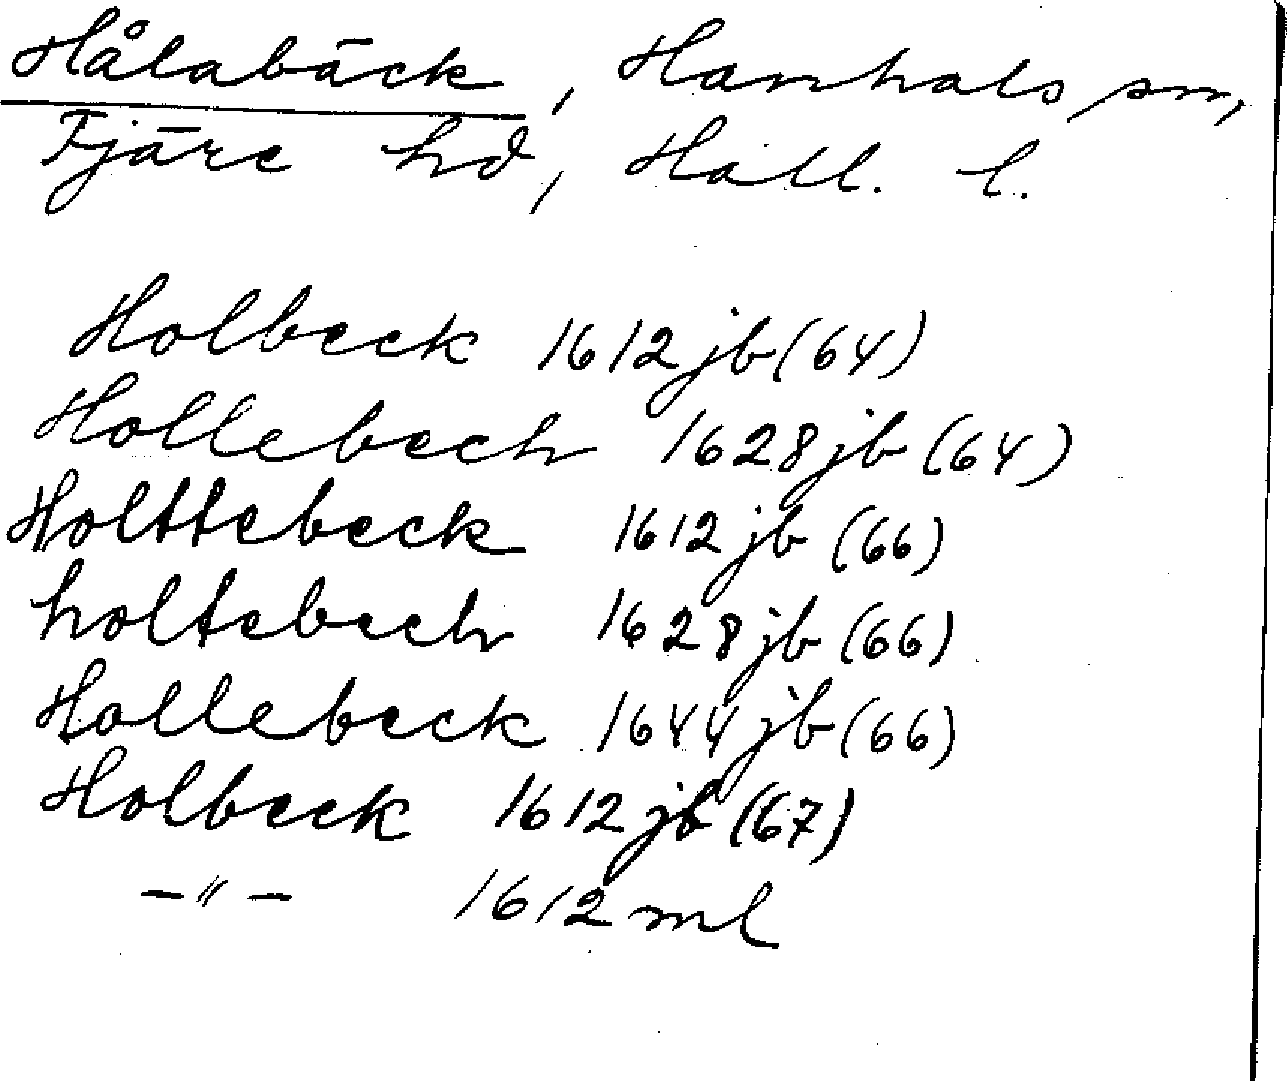 Hålabäck, Hanhals sn,
Fjäre hd, Hall. l.
Holbeck 1612 jb (64)
Hollebech 1628 jb (64)
Holttebeck 1612 jb (66)
holtebech 1628 jb (66)
Hollebeck 1644 jb (66)
Holbeck 1612 jb (67)
-"- 1612 ml